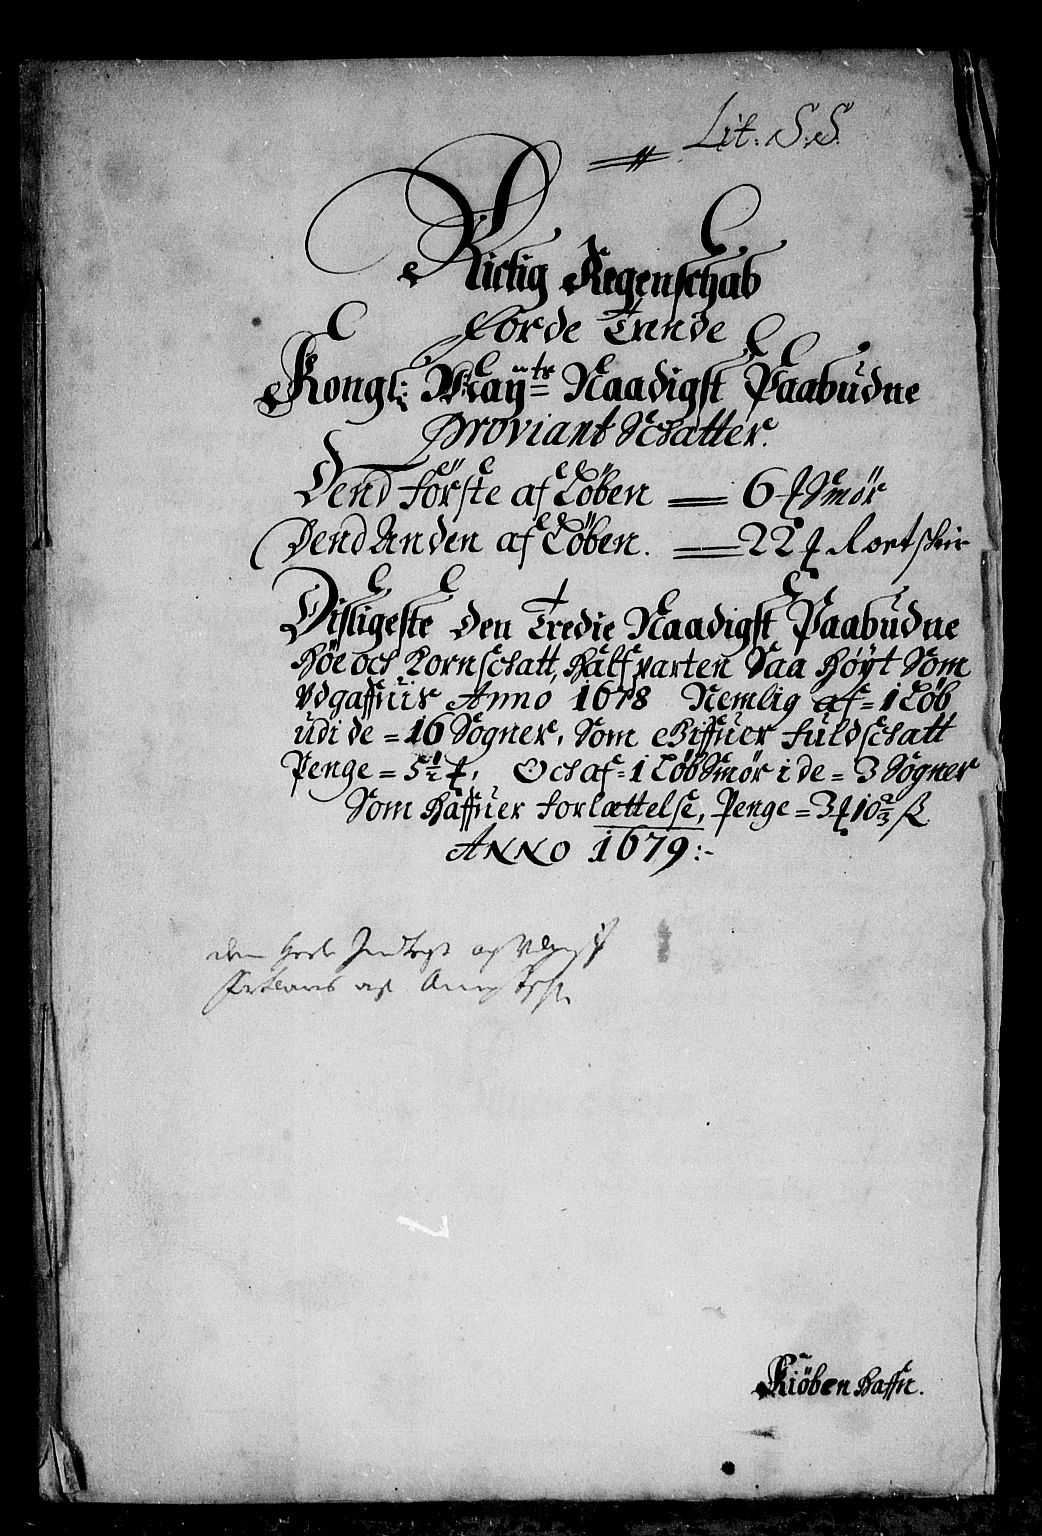 Lit. S.S.
Rictig Regenschab
Forde Trende
Kongl: Maÿtz Naadigst Paabudne
Proviant Schatter.
Dend förste af Löben == 6 ℔ Smör
Dend Anden af Löben. == 22 ℔
Disligeste den Tredie Naadigst Paabudne
Höe och Kornschatt, halfparten Saa höyt Som
Udgaffuir Anno 1678 Nemlig af = 1 Löb
udi de = 16 Sogner, Som Giffuer fuldschatt
Penge = 5½ ℔, Och af = 1 Löb Smör i de = 3 Sogner
Som haffuer forlættelse, Penge = 3 ℔ 10⅔ ß
ANNO 1679:-
Kiöbenhaffn.